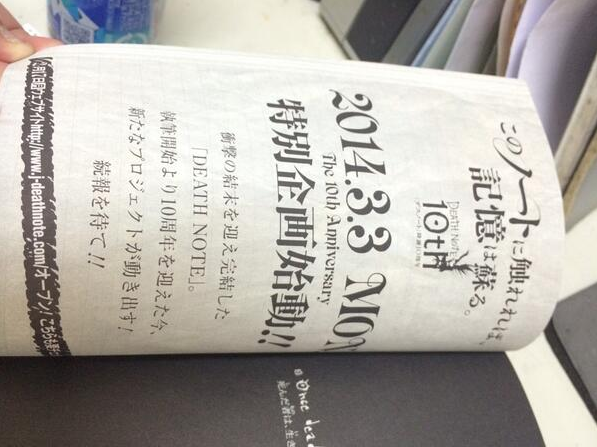 このノートに触れれば、
記憶は蘇る。
DEATH NOTE
10th
2014.3.3 MON
The 10th Anniversary
特別企画始動!!
衝撃の結末を迎え完結した
「DEATH NOTE」。
執筆開始より10周年を迎えた今、
新たなプロジェクトが動き出す!
続報を待て!!
ウェブサイトhttp://www.j-deathnote.com/オープン!こちらも要
Once dea
死んだ者は、生き